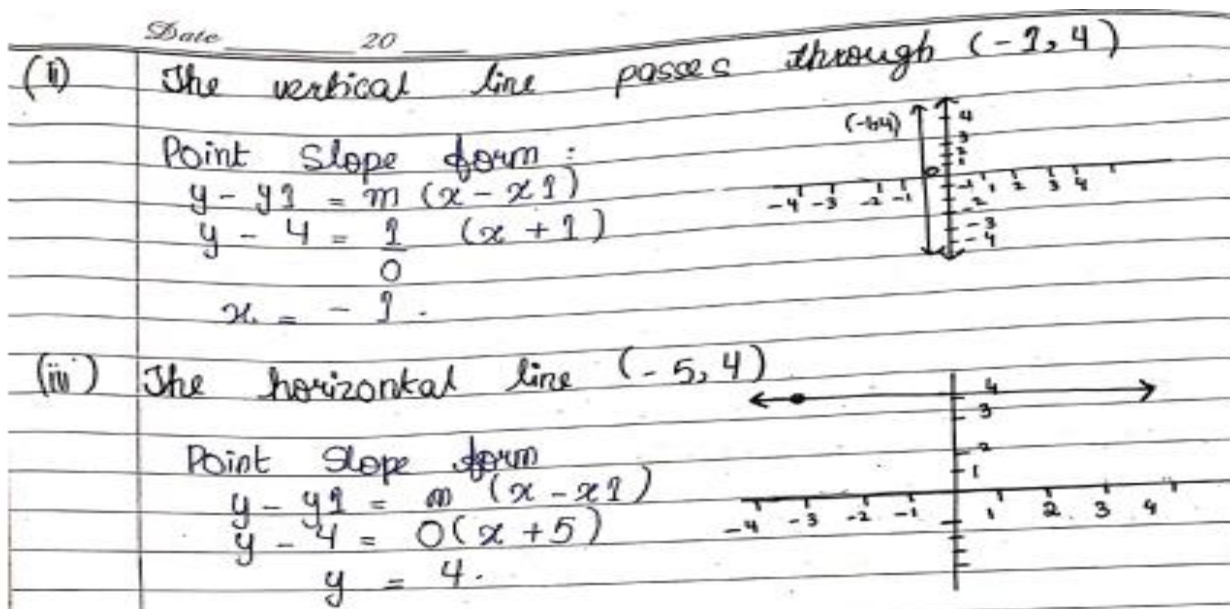 Date 20
(ii) The vertical line passes through (-1, 4)
Point Slope form :
y - y1 = m (x - x1)
y - 4 = 1/0 (x + 1)
x = - 1.
(-1,4)
4
3
2
1
-4 -3 -2 -1 -1 1 2 3 4
-2
-3
-4
(iii) The horizontal line (-5, 4)
Point Slope form
y - y1 = m (x - x1)
y - 4 = 0(x + 5)
y = 4.
4
3
2
1
-4 -3 -2 -1 1 2 3 4